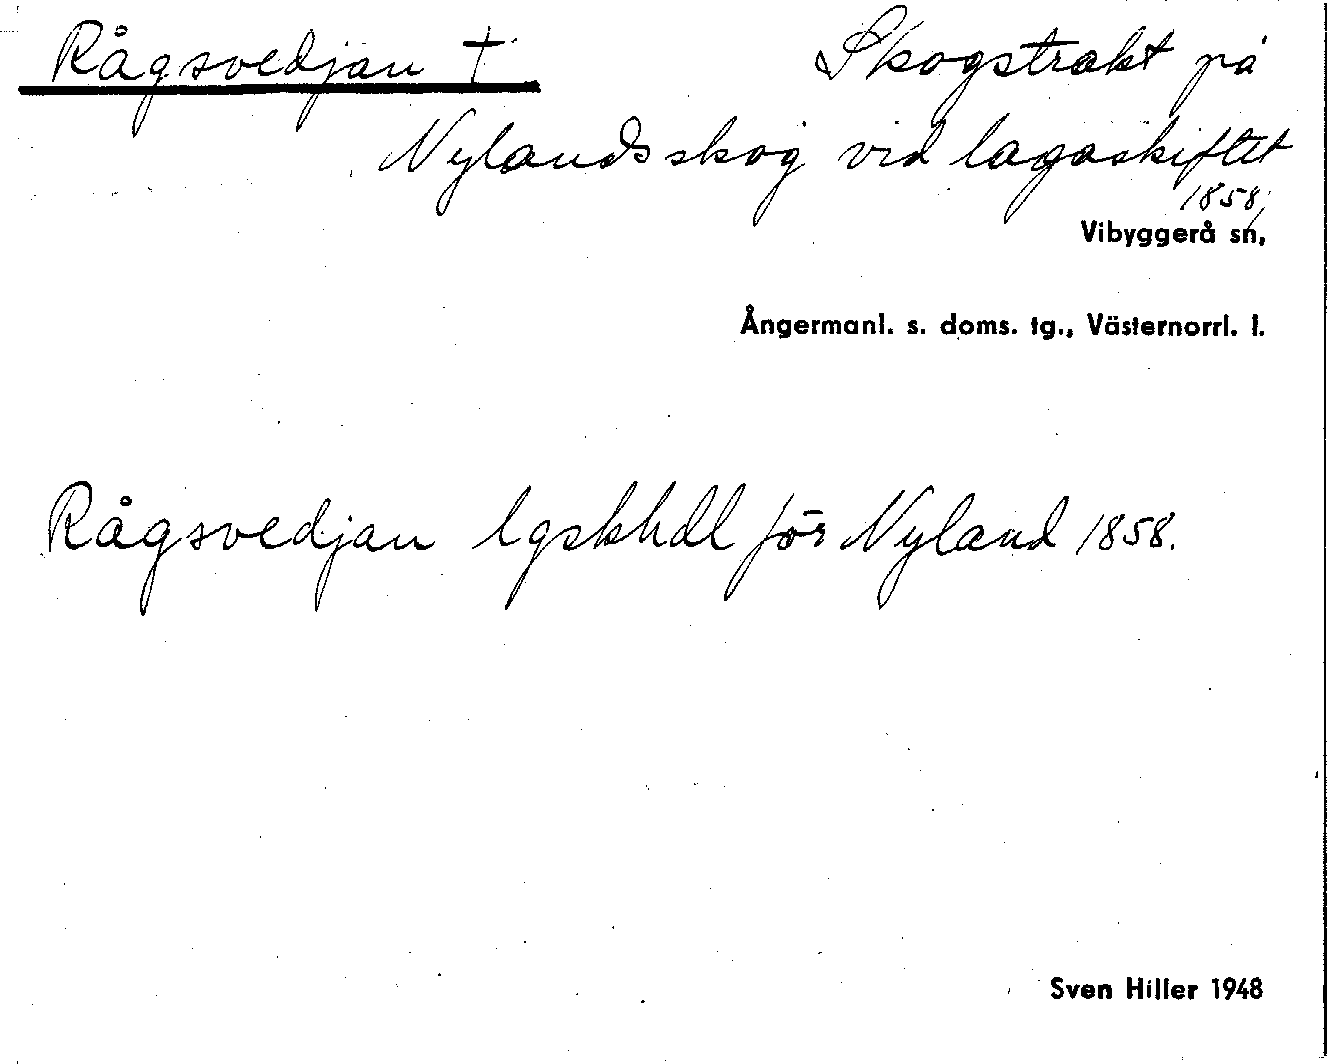 Rågsvedjan † Skogstrakt på
Nylandsskog vid lagaskiftet
1858,
Vibyggerå sn,
Ångermanl. s. doms. tg., Västernorrl. l.
Rågsvedjan lgskhdl för Nyland 1858.
Sven Hiller 1948